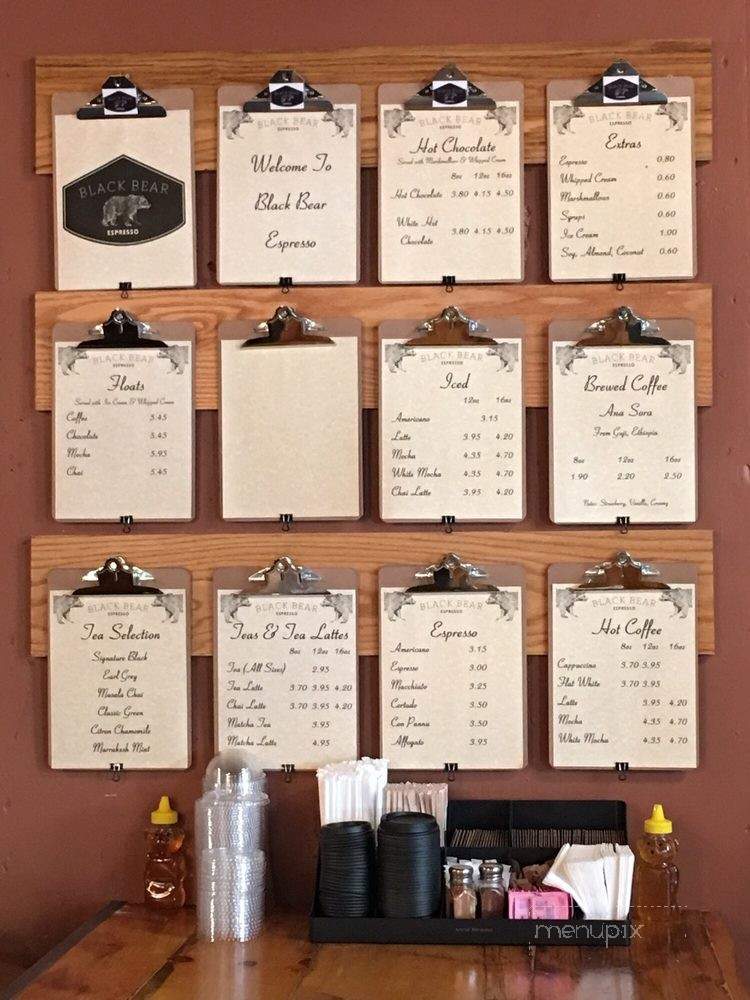 BLACK BEAR
ESPRESSO
BLACK BEAR
ESPRESSO
Welcome To
Black Bear
Espresso
BLACK BEAR
ESPRESSO
Hot Chocolate
Served with Marshmallows & Whipped Cream
8oz 12oz 16oz
Hot Chocolate 3.80 4.15 4.50
White Hot
Chocolate 3.80 4.15 4.50
BLACK BEAR
ESPRESSO
Extras
Espresso 0.80
Whipped Cream 0.60
Marshmallows 0.60
Syrups 0.60
Ice Cream 1.00
Soy, Almond, Coconut 0.60
BLACK BEAR
ESPRESSO
Floats
Served with Ice Cream & Whipped Cream
Coffee 5.45
Chocolate 5.45
Mocha 5.95
Chai 5.45
BLACK BEAR
ESPRESSO
Iced
12oz 16oz
Americano 3.15
Latte 3.95 4.20
Mocha 4.35 4.70
White Mocha 4.35 4.70
Chai Latte 3.95 4.20
BLACK BEAR
ESPRESSO
Brewed Coffee
Ana Sora
From Guji, Ethiopia
8oz 12oz 16oz
1.90 2.20 2.50
Notes: Strawberry, Vanilla, Creamy
BLACK BEAR
ESPRESSO
Tea Selection
Signature Black
Earl Grey
Masala Chai
Classic Green
Citron Chamomile
Marrakesh Mint
BLACK BEAR
ESPRESSO
Teas & Tea Lattes
8oz 12oz 16oz
Tea (All Sizes) 2.95
Tea Latte 3.70 3.95 4.20
Chai Latte 3.70 3.95 4.20
Matcha Tea 3.95
Matcha Latte 4.95
BLACK BEAR
ESPRESSO
Espresso
Americano 3.15
Espresso 3.00
Macchiato 3.25
Cortado 3.50
Con Panna 3.50
Affogato 3.95
BLACK BEAR
ESPRESSO
Hot Coffee
8oz 12oz 16oz
Cappuccino 3.70 3.95
Flat White 3.70 3.95
Latte 3.95 4.20
Mocha 4.35 4.70
White Mocha 4.35 4.70
menupix